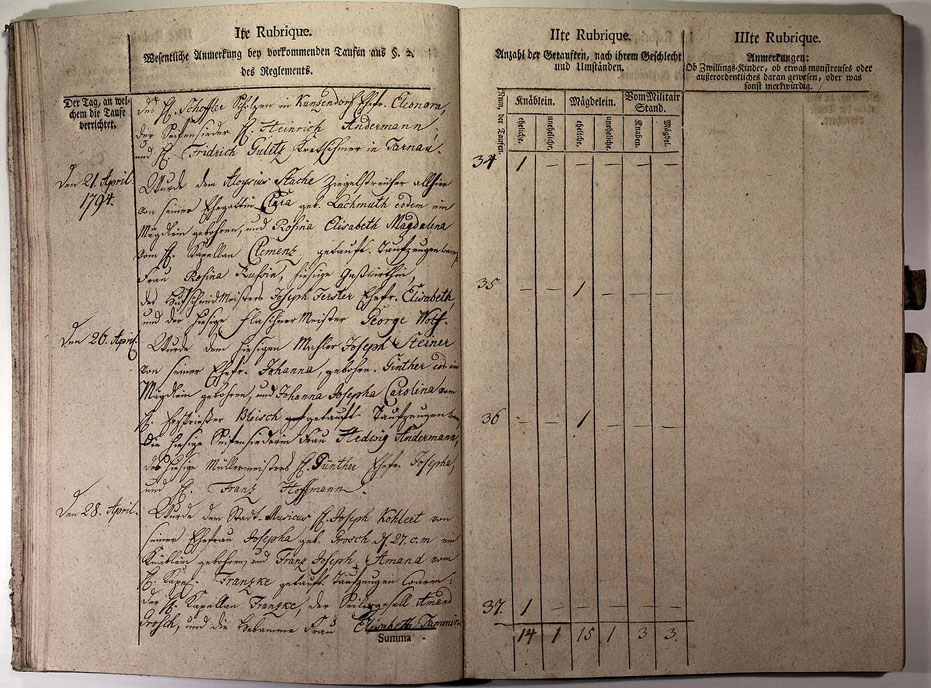 Ite Rubrique.
Wesentliche Anmerkung bey vorkommenden Taufen aus §. 2.
des Reglements.
Der Tag, an wel-
chem die Taufe
verrichtet.
des H. Scholtzen in Kunzendorf Ehefr. Eleonara,
der Seifensieder H. Heinrich Andermann,
und H. Fridrich Gulitz Kretschmer in Tarnau.
Den 21. April
1794.
Wurde dem Aloysius Stache Ziegelstreicher allhier
von seiner Ehegattin Clara geb. Lachmuth eodem ein
Mägdlein gebohren, und Rosina Elisabeth Magdalena
vom H. Kapellan Clemenz getauft. Taufzeugen waren,
Frau Rosina, hiesige Gastwirthin,
des Meisters Joseph Ehefr. Elisabeth,
und der hiesige Flaschner Meister George Wolf.
Den 26. April.
Wurde dem hiesigen Mahler Joseph Steiner
von seiner Ehefr. Johanna, gebohrn. Günther ein
Mägdlein gebohren, und Johanna Josepha Carolina vom
H. getauft. Taufzeugen
die hiesige Seifensiederin Frau Hedwig Andermann,
des hiesige Müllermeisters H. Günther Ehefr. Josepha
und H. Franz Hoffmann.
Den 28. April.
Wurde dem Stadt-Musicus H. Joseph Kohlert von
seiner Ehefrau Josepha geb. Grosch d. 27. c. m ein
Knäblein gebohren, und Franz Joseph Amand vom
H. Kapel. Franzke getauft. Taufzeugen waren:
der H. Kapellan Franzke, der Amand
Grosch, und die Hebamme Frau Elisabeth
Summa
IIte Rubrique.
Anzahl der Getauften, nach ihrem Geschlecht
und Umständen.
Num. der Taufen.
Knäblein.
Mägdelein.
Vom Militair
Stand.
eheliche.
uneheliche.
eheliche.
uneheliche.
Knaben.
Mägdel.
34 1 – – – – –
35 – – 1 – – –
36 – – 1 – – –
37. 1 – – – – –
14 1 15 1 3 3.
IIIte Rubrique.
Anmerkungen:
Ob Zwillings-Kinder, ob etwas monstreuses oder
außerordentliches daran gewesen, oder was
sonst merkwürdig.